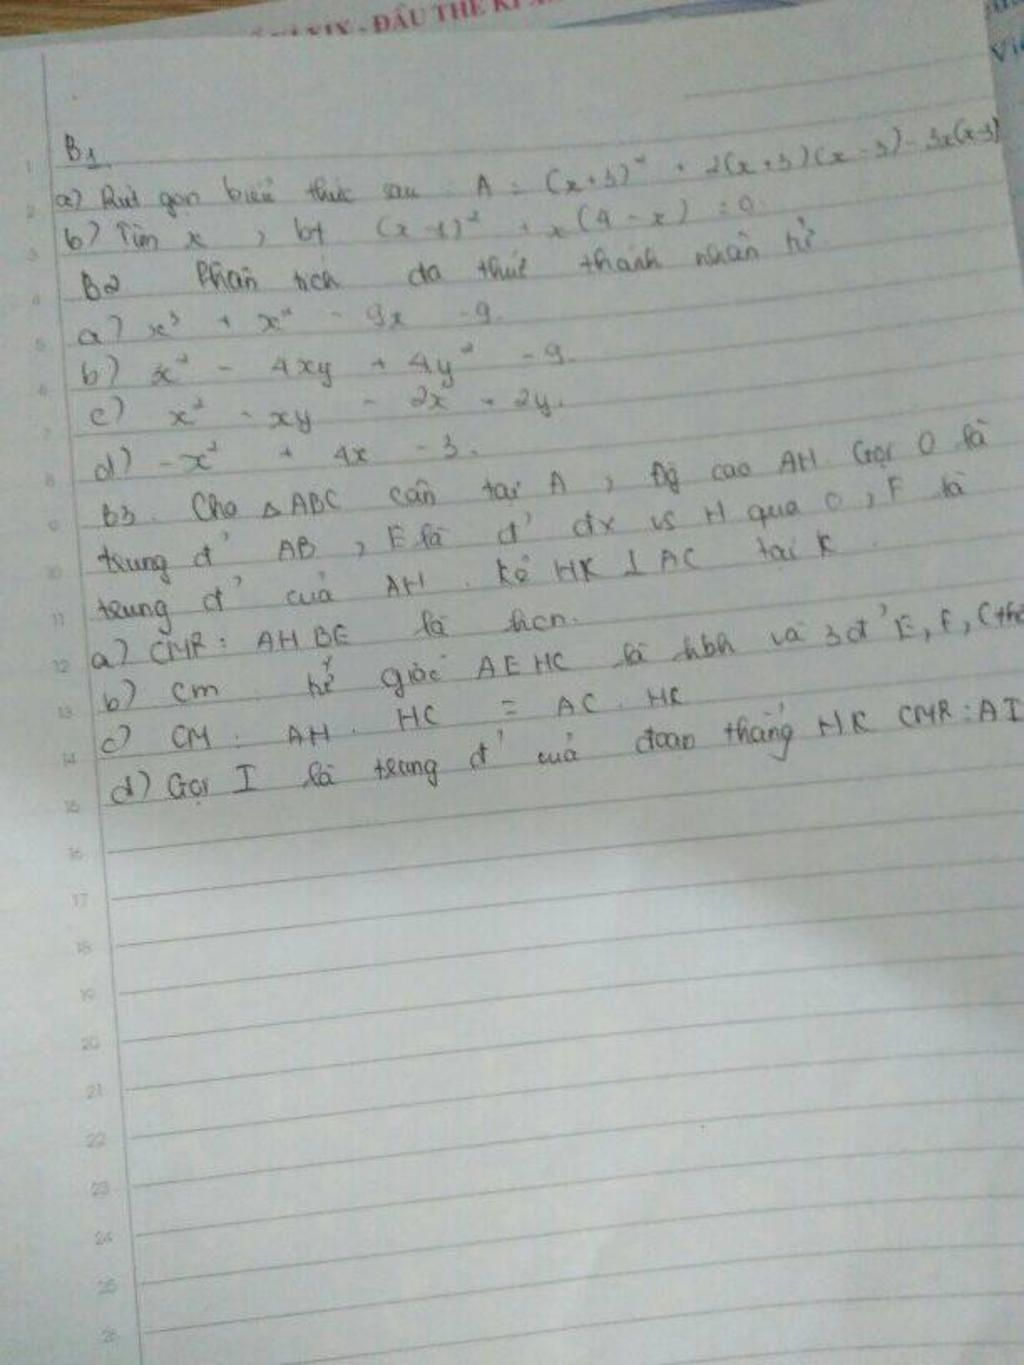 - ĐẦU THẾ KỈ
B1
a) Rút gọn biểu thức sau : A = (x+3)² + 2(x+3)(x-3) - 3x(x-3)
b) Tìm x , bt (x-1)² + x(4-x) = 0
B2 Phân tích đa thức thành nhân tử
a) x³ + x² - 9x - 9.
b) x² - 4xy + 4y² - 9.
c) x² - xy - 2x + 2y.
d) -x² + 4x - 3.
B3. Cho △ABC cân tại A , Độ cao AH. Gọi O là
trung đ' AB , E là đ' đx vs H qua O , F là
trung đ' của AH . Kẻ HK ⊥ AC tại K .
a) CMR : AHBE là hcn.
b) cm tứ giác AEHC là hbh và 3 đ' E, F, C
c) CM : AH . HC = AC . HK
d) Gọi I là trung đ' của đoạn thẳng HK CMR : AI